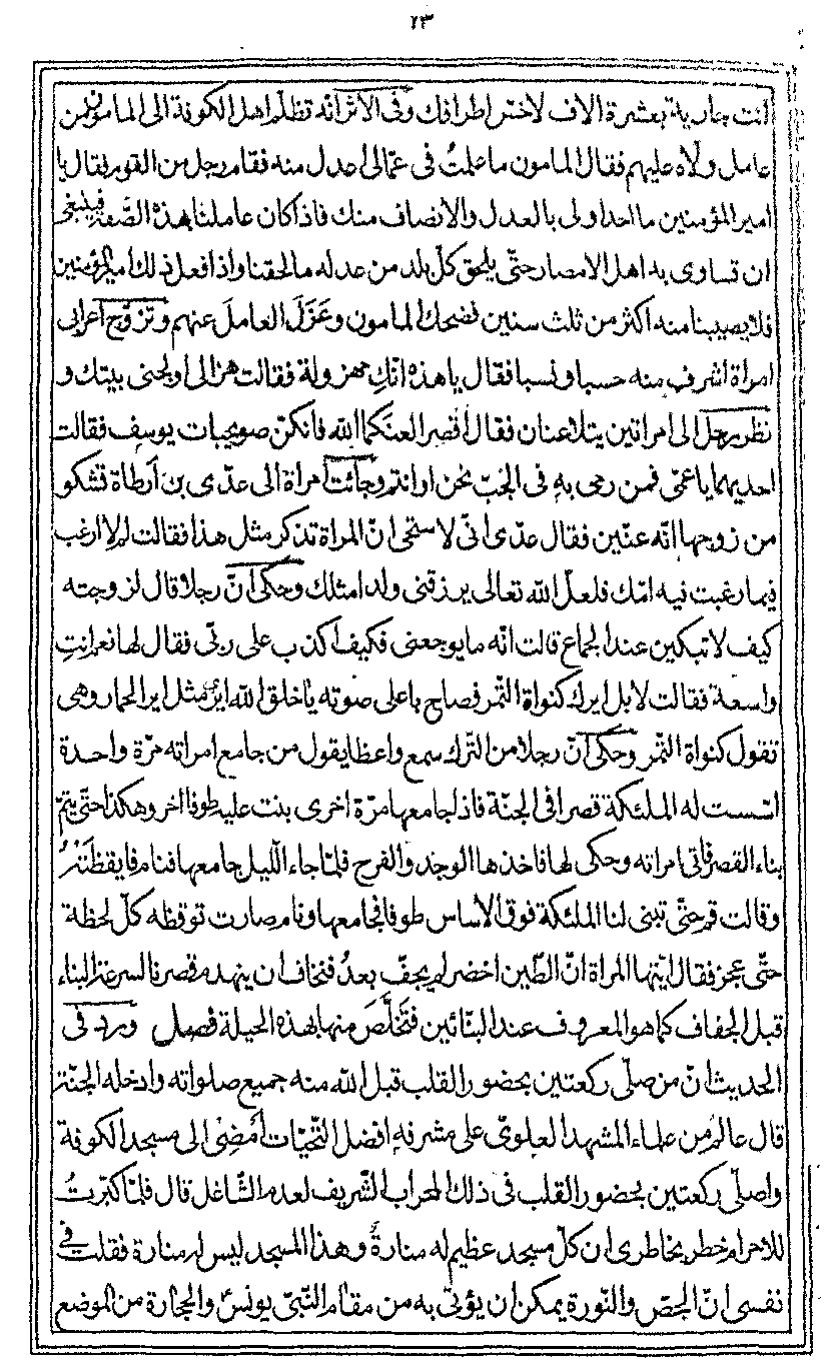 ١٣
انت جارية بعشرة الاف لاختر اطرافك وفى الاثر انّه تظلّم اهل الكوفة الى المامون من
عامل ولّاه عليهم فقال المامون ما علمتُ فى عمّالى اعدل منه فقام رجل من القوم فقال يا
امير المؤمنين ما احد اولى بالعدل والانصاف منك فاذا كان عاملنا بهذه الصّفة فينبغى
ان تساوى به اهل الامصار حتّى يلحق كلّ بلد من عدله ما لحقنا واذا فعل ذلك امير المؤمنين
فلا يصيبنا منه اكثر من ثلث سنين فضحك المامون وعَزَلَ العاملَ عنهم وتزوّج اعرابى
امراة اشرف منه حسبا ونسبا فقال يا هذه انّكِ مهزولة فقالت هزالى اولجنى بيتك و
نظر رجل الى امراتين يتلاعنان فقال اقصرا لعنكما الله فانكنّ صويحبات يوسف فقالت
احديهما يا عمّى فمن رمى به فى الجُبّ نحن او انتم وجائت امراة الى عدّى بن أرطاة تشكو
من زوجها انّه عنّين فقال عدّى انّى لاستحى انّ المراة تذكر مثل هذا فقالت لم لا ارغب
فيما رغبت فيه امّك فلعلّ الله تعالى يرزقنى ولدا مثلك وحكى انّ رجلا قال لزوجته
كيف لا تبكين عند الجماع قالت انّه ما يوجعنى فكيف اكذب على ربّى فقال لها نعم انتِ
واسعة فقالت لا بل ايرك كنواة التّمر فصاح باعلى صوته يا خلق الله ايرٌ مثل اير الحمار وهى
تقول كنواة التّمر وحكى انّ رجلا من التّرك سمع واعظا يقول من جامع امراته مرّة واحدة
اسّست له الملئكة قصرا فى الجنّة فاذا جامعها مرّة اخرى بنت عليه طوفا اخر وهكذا حتّى يتمّ
بناء القصر فاتى امراته وحكى لها فاخذها الوجد والفرح فلمّا جاء اللّيل جامعها فنام فايقظَتْهُ
وقالت قم حتّى تبنى لنا الملئكة فوق الاساس طوفا فجامعها ونام وصارت توقظه كلّ لحظة
حتّى عجز فقال ايّتها المراة انّ الطّين اخضر لم يجفّ بعدُ فنخاف ان ينهدم قصرنا لسرعة البناء
قبل الجفاف كما هو المعروف عند البنّائين فتَخَلَّصَ منها بهذه الحيلة فصل ورد فى
الحديث انّ من صلّى ركعتين بحضور القلب قبل الله منه جميع صلواته وادخله الجنّة
قال عالم من علماء المشهد العلوىّ على مشرفه افضل التّحيّات أمضى الى مسجد الكوفة
واصلّى ركعتين بحضور القلب فى ذلك المحراب الشّريف لعدم الشّاغل قال فلمّا كبّرتُ
للاحرام خطر بخاطرى ان كلّ مسجد عظيم له منارةٌ وهذا المسجد ليس له منارة فقلت فى
نفسى انّ الجصّ والنّورة يمكن ان يؤتى به من مقام النّبىّ يونس والحجارة من الموضع